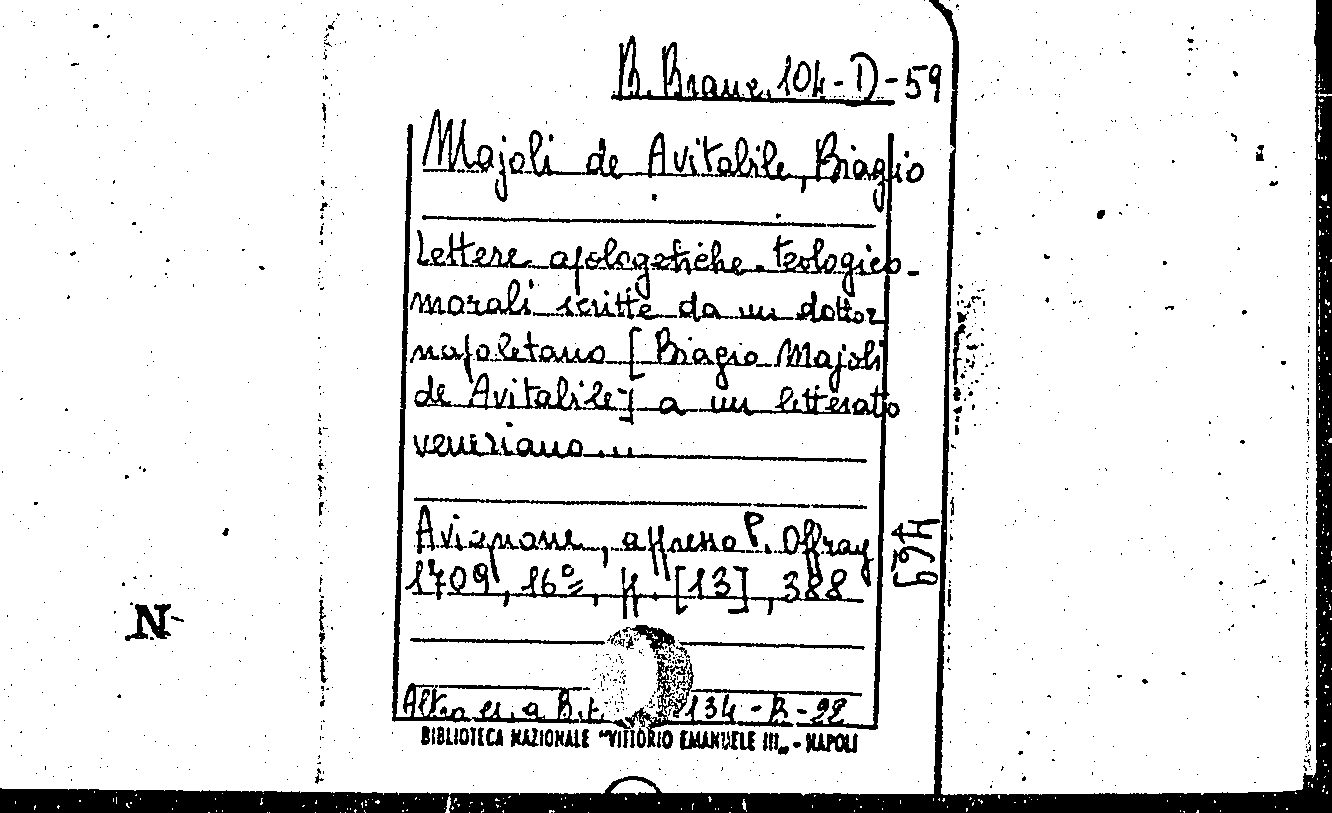 B. Branc. 104-D-59
Majoli de Avitabile, Biagio
Lettere apologetiche-teologico-
morali scritte da un dottor
napoletano [Biagio Majoli
de Avitabile] a un letterato
veneziano...
Avignone, appresso P. Offray
1709, 16°, pp. [13], 388
469
N
Altro es. a B. 134-B-22
BIBLIOTECA NAZIONALE "VITTORIO EMANUELE III„ - NAPOLI